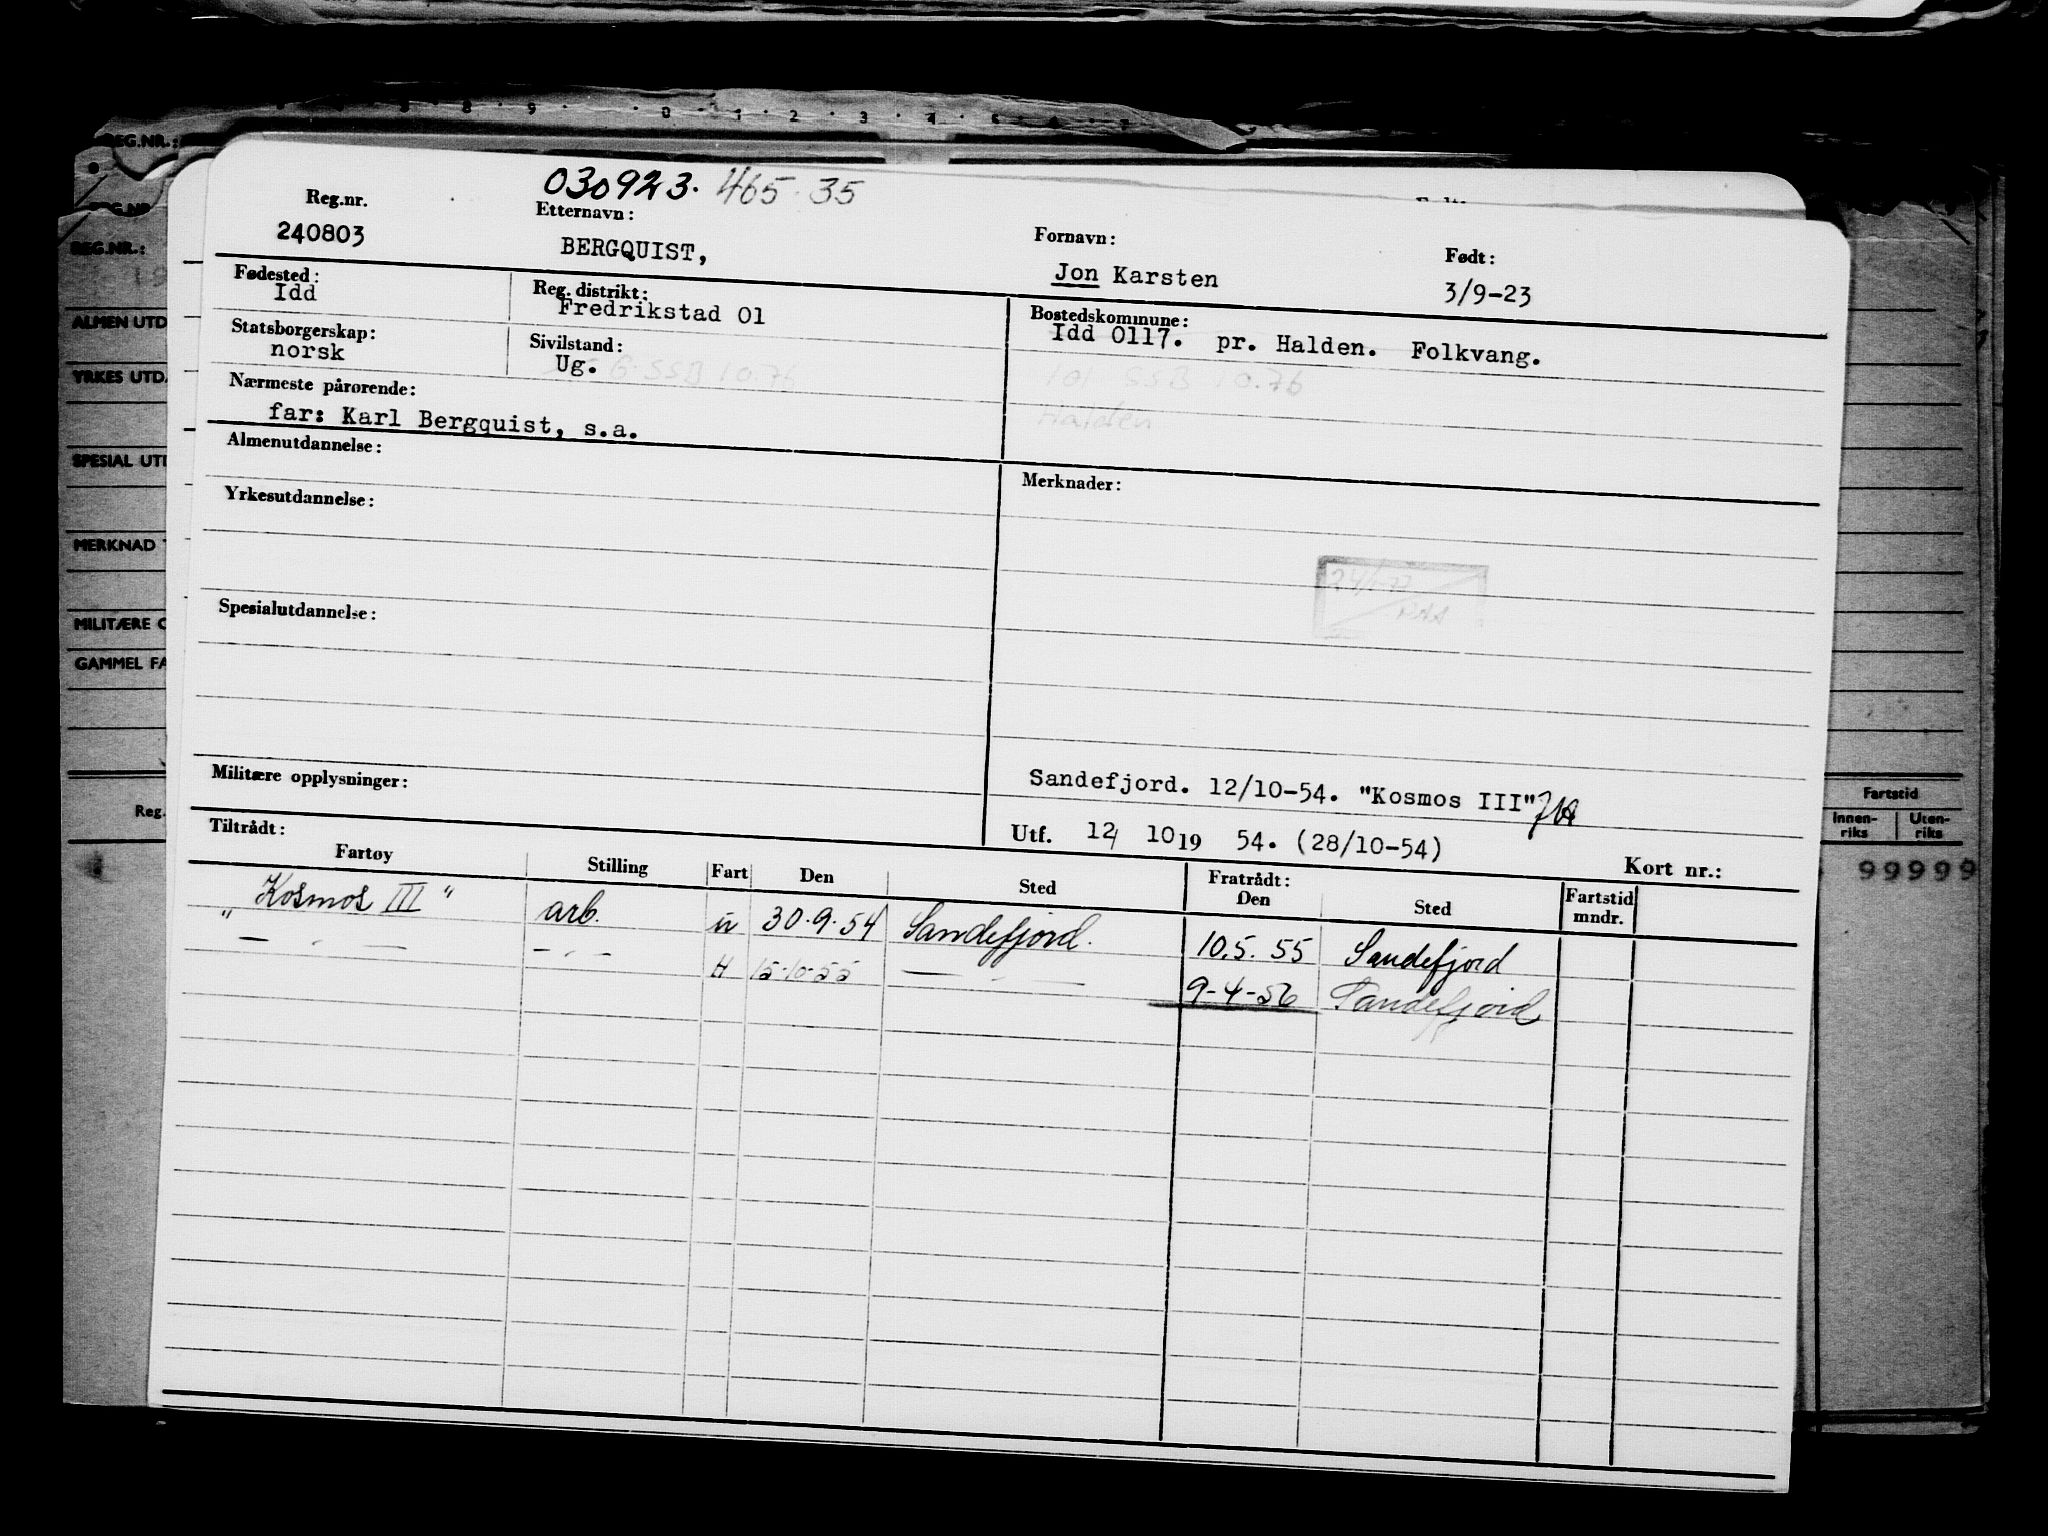 8 9 0 1 2 3 4 5 6 7
REG.NR.:
REG.NR.
REG.NR.:
19
ALMEN UTD
YRKES UTD.
SPESIAL UTD
MERKNAD
MILITÆRE O
GAMMEL FA
Reg.
Fartstid
Innen-riks Uten-riks
99999
030923. 465 35
Reg.nr. Etternavn: Fornavn: Født:
240803 BERGQUIST, Jon Karsten 3/9-23
Fødested: Reg. distrikt: Bostedskommune:
Idd Fredrikstad 01 Idd 0117. pr. Halden. Folkvang.
Statsborgerskap: Sivilstand:
norsk Ug. G. SSB 10.76 101 SSB 10.76
Nærmeste pårørende: Halden
far: Karl Bergquist, s.a.
Almenutdannelse:
Merknader:
Yrkesutdannelse:
24/1-77
Spesialutdannelse:
Militære opplysninger:
Sandefjord. 12/10-54. "Kosmos III"
Utf. 12/ 10 19 54. (28/10-54)
Tiltrådt: Fratrådt: Kort nr.:
Fartøy Stilling Fart Den Sted Den Sted Fartstid mndr.
"Kosmos III" arb. ū 30.9.54 Sandefjord. 10.5.55 Sandefjord
" — " — — " — H 15-10-55 — " — 9-4-56 Sandefjord